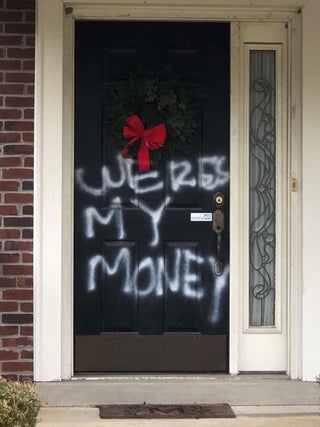 WERES
MY
MONEY